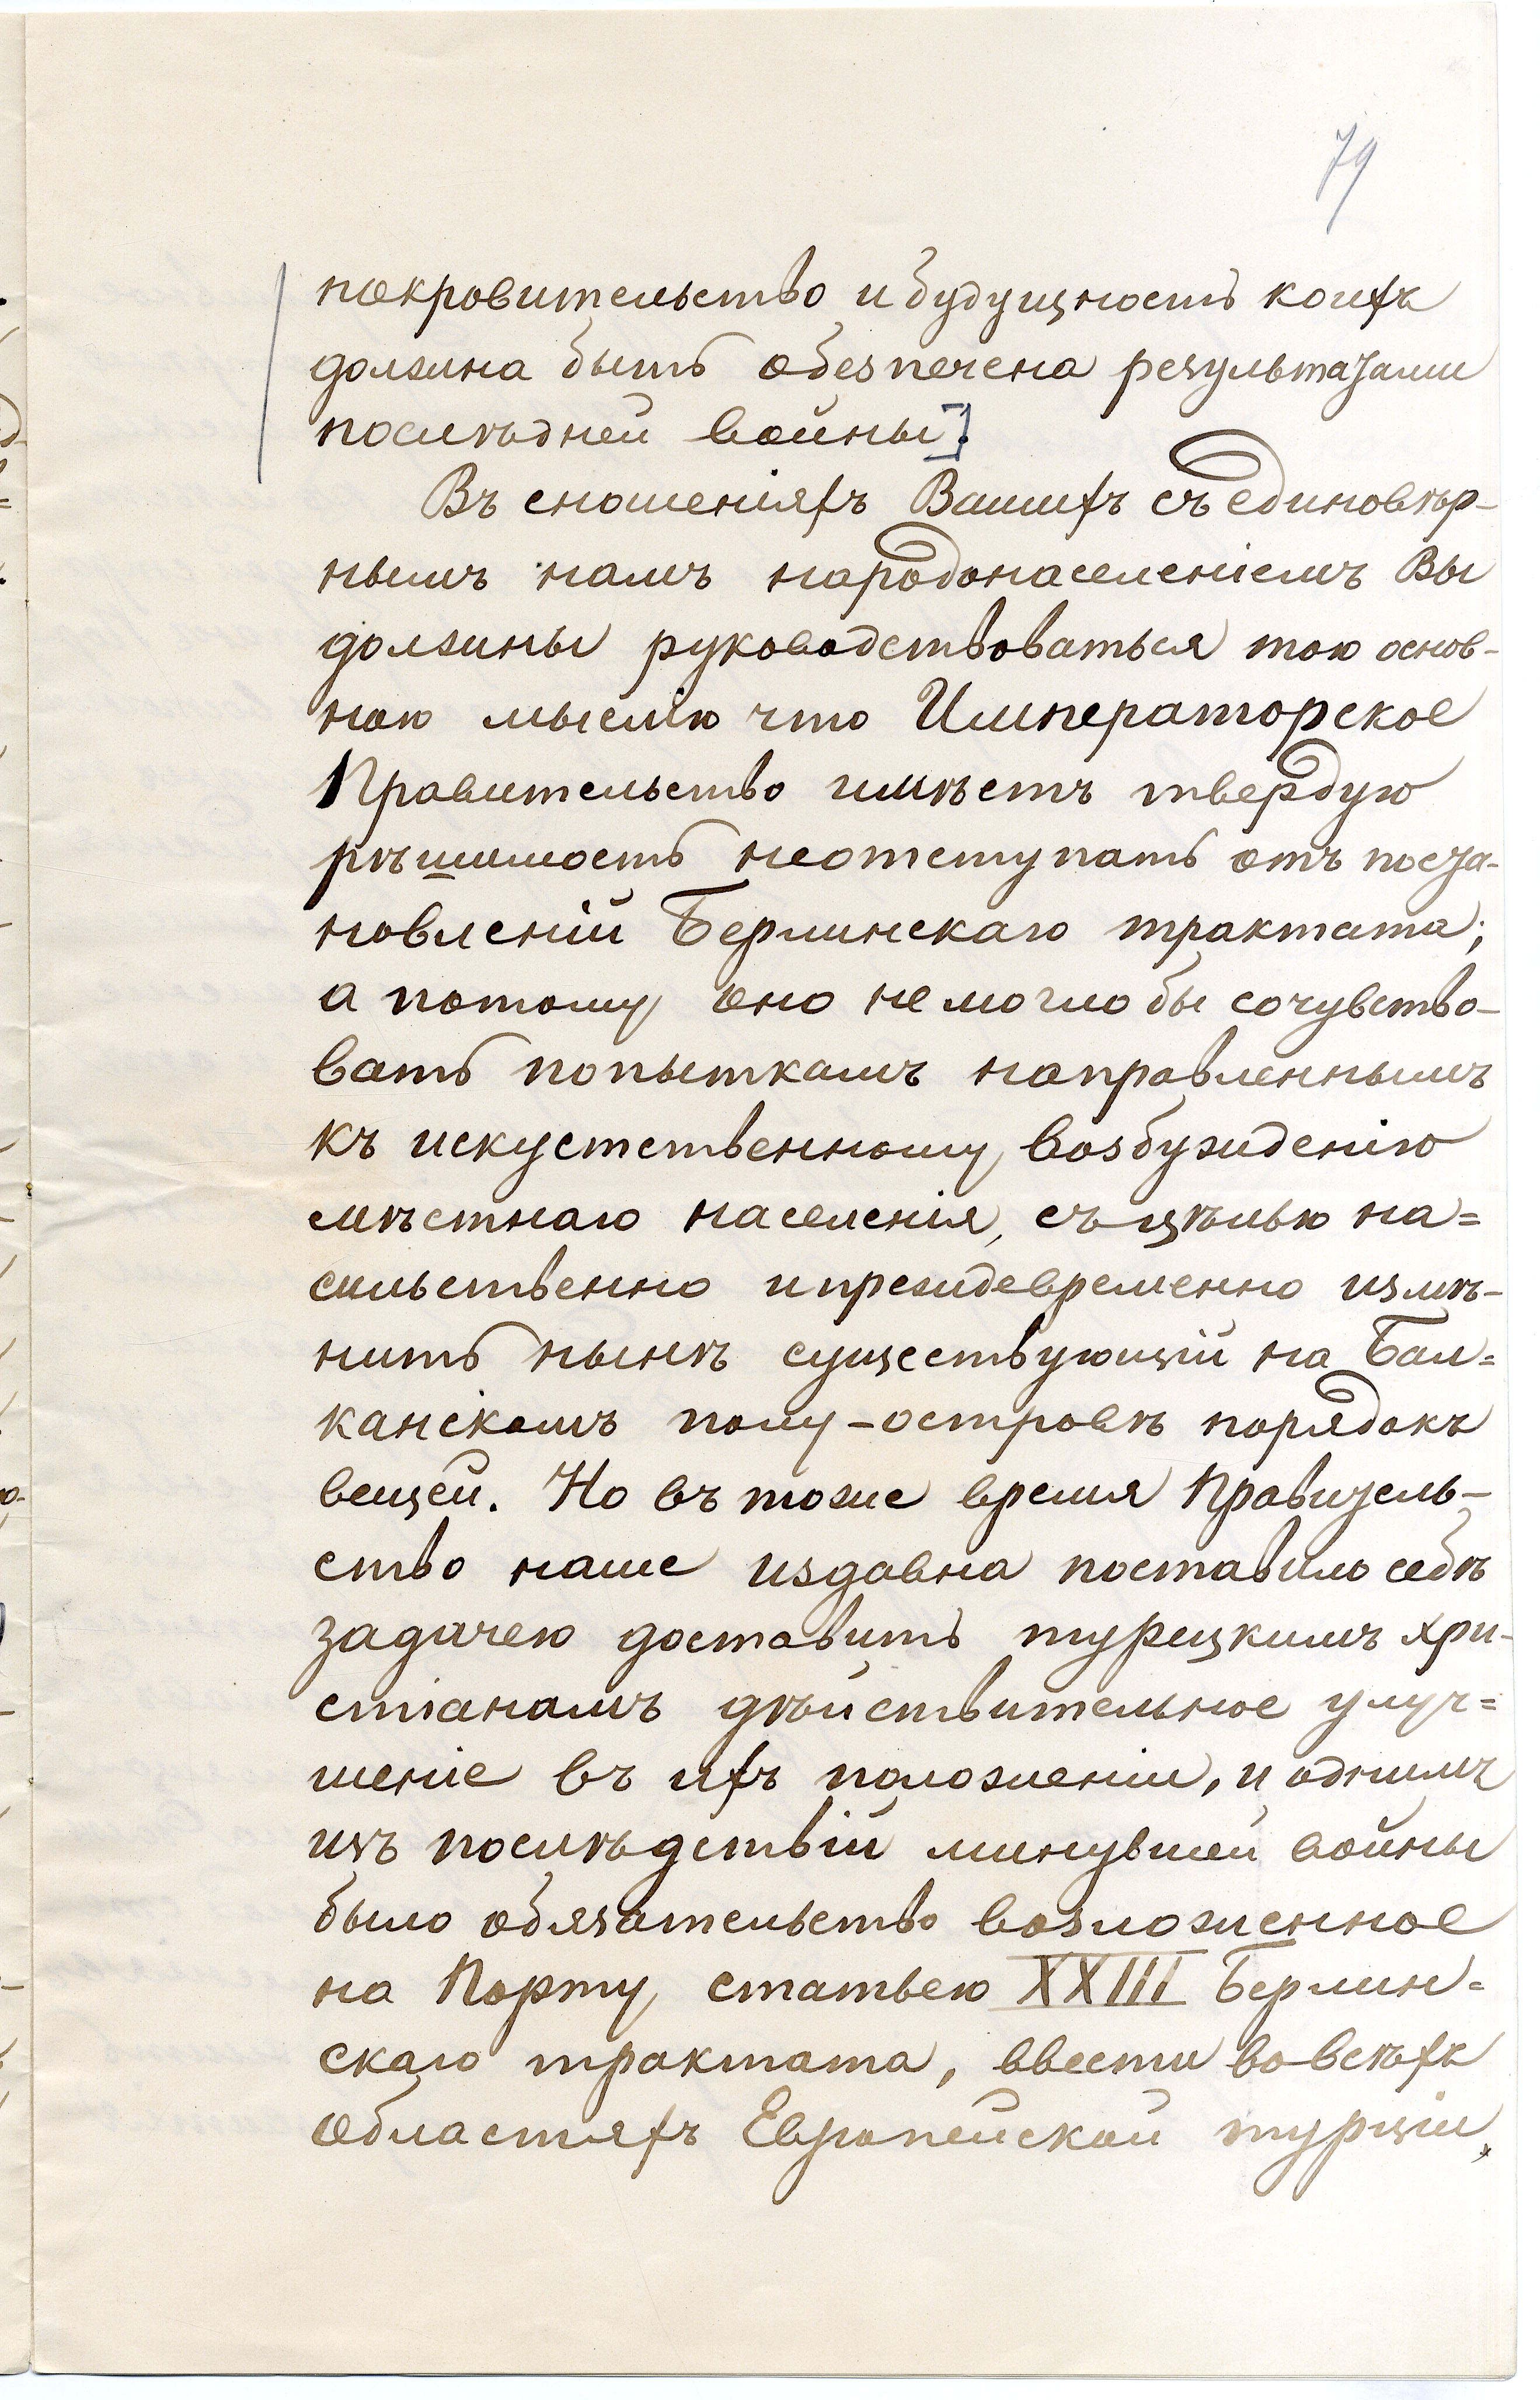 79
покровительство и будущность коихъ
должна быть обезпечена результатами
послѣдней войны].
Въ сношеніяхъ Вашихъ съ единовѣр-
нымъ намъ народонаселеніемъ Вы
должны руководствоваться тою основ-
ною мыслію что Императорское
Правительство имѣетъ твердую
рѣшимость неотступать отъ поста-
новленій Берлинскаго трактата;
а потому оно не могло бы сочувство-
вать попыткамъ направленнымъ
къ искуственному возбужденію
мѣстнаго населенія, съ цѣлью на=
сильственно и преждевременно измѣ-
нить нынѣ существующій на Бал=
канскомъ полу-островѣ порядокъ
вещей. Но въ тоже время Правитель-
ство наше издавна поставило себѣ
задачею доставить турецкимъ хри-
стіанамъ дѣйствительное улуч=
шеніе въ ихъ положеніи, и однимъ
изъ послѣдствій минувшей войны
было обязательство возложенное
на Порту статьею XXIII Берлин=
скаго трактата, ввести во всѣхъ
областяхъ Европейской турціи,